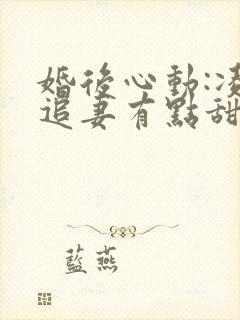 婚後心動:凌
追妻有點甜
藍燕